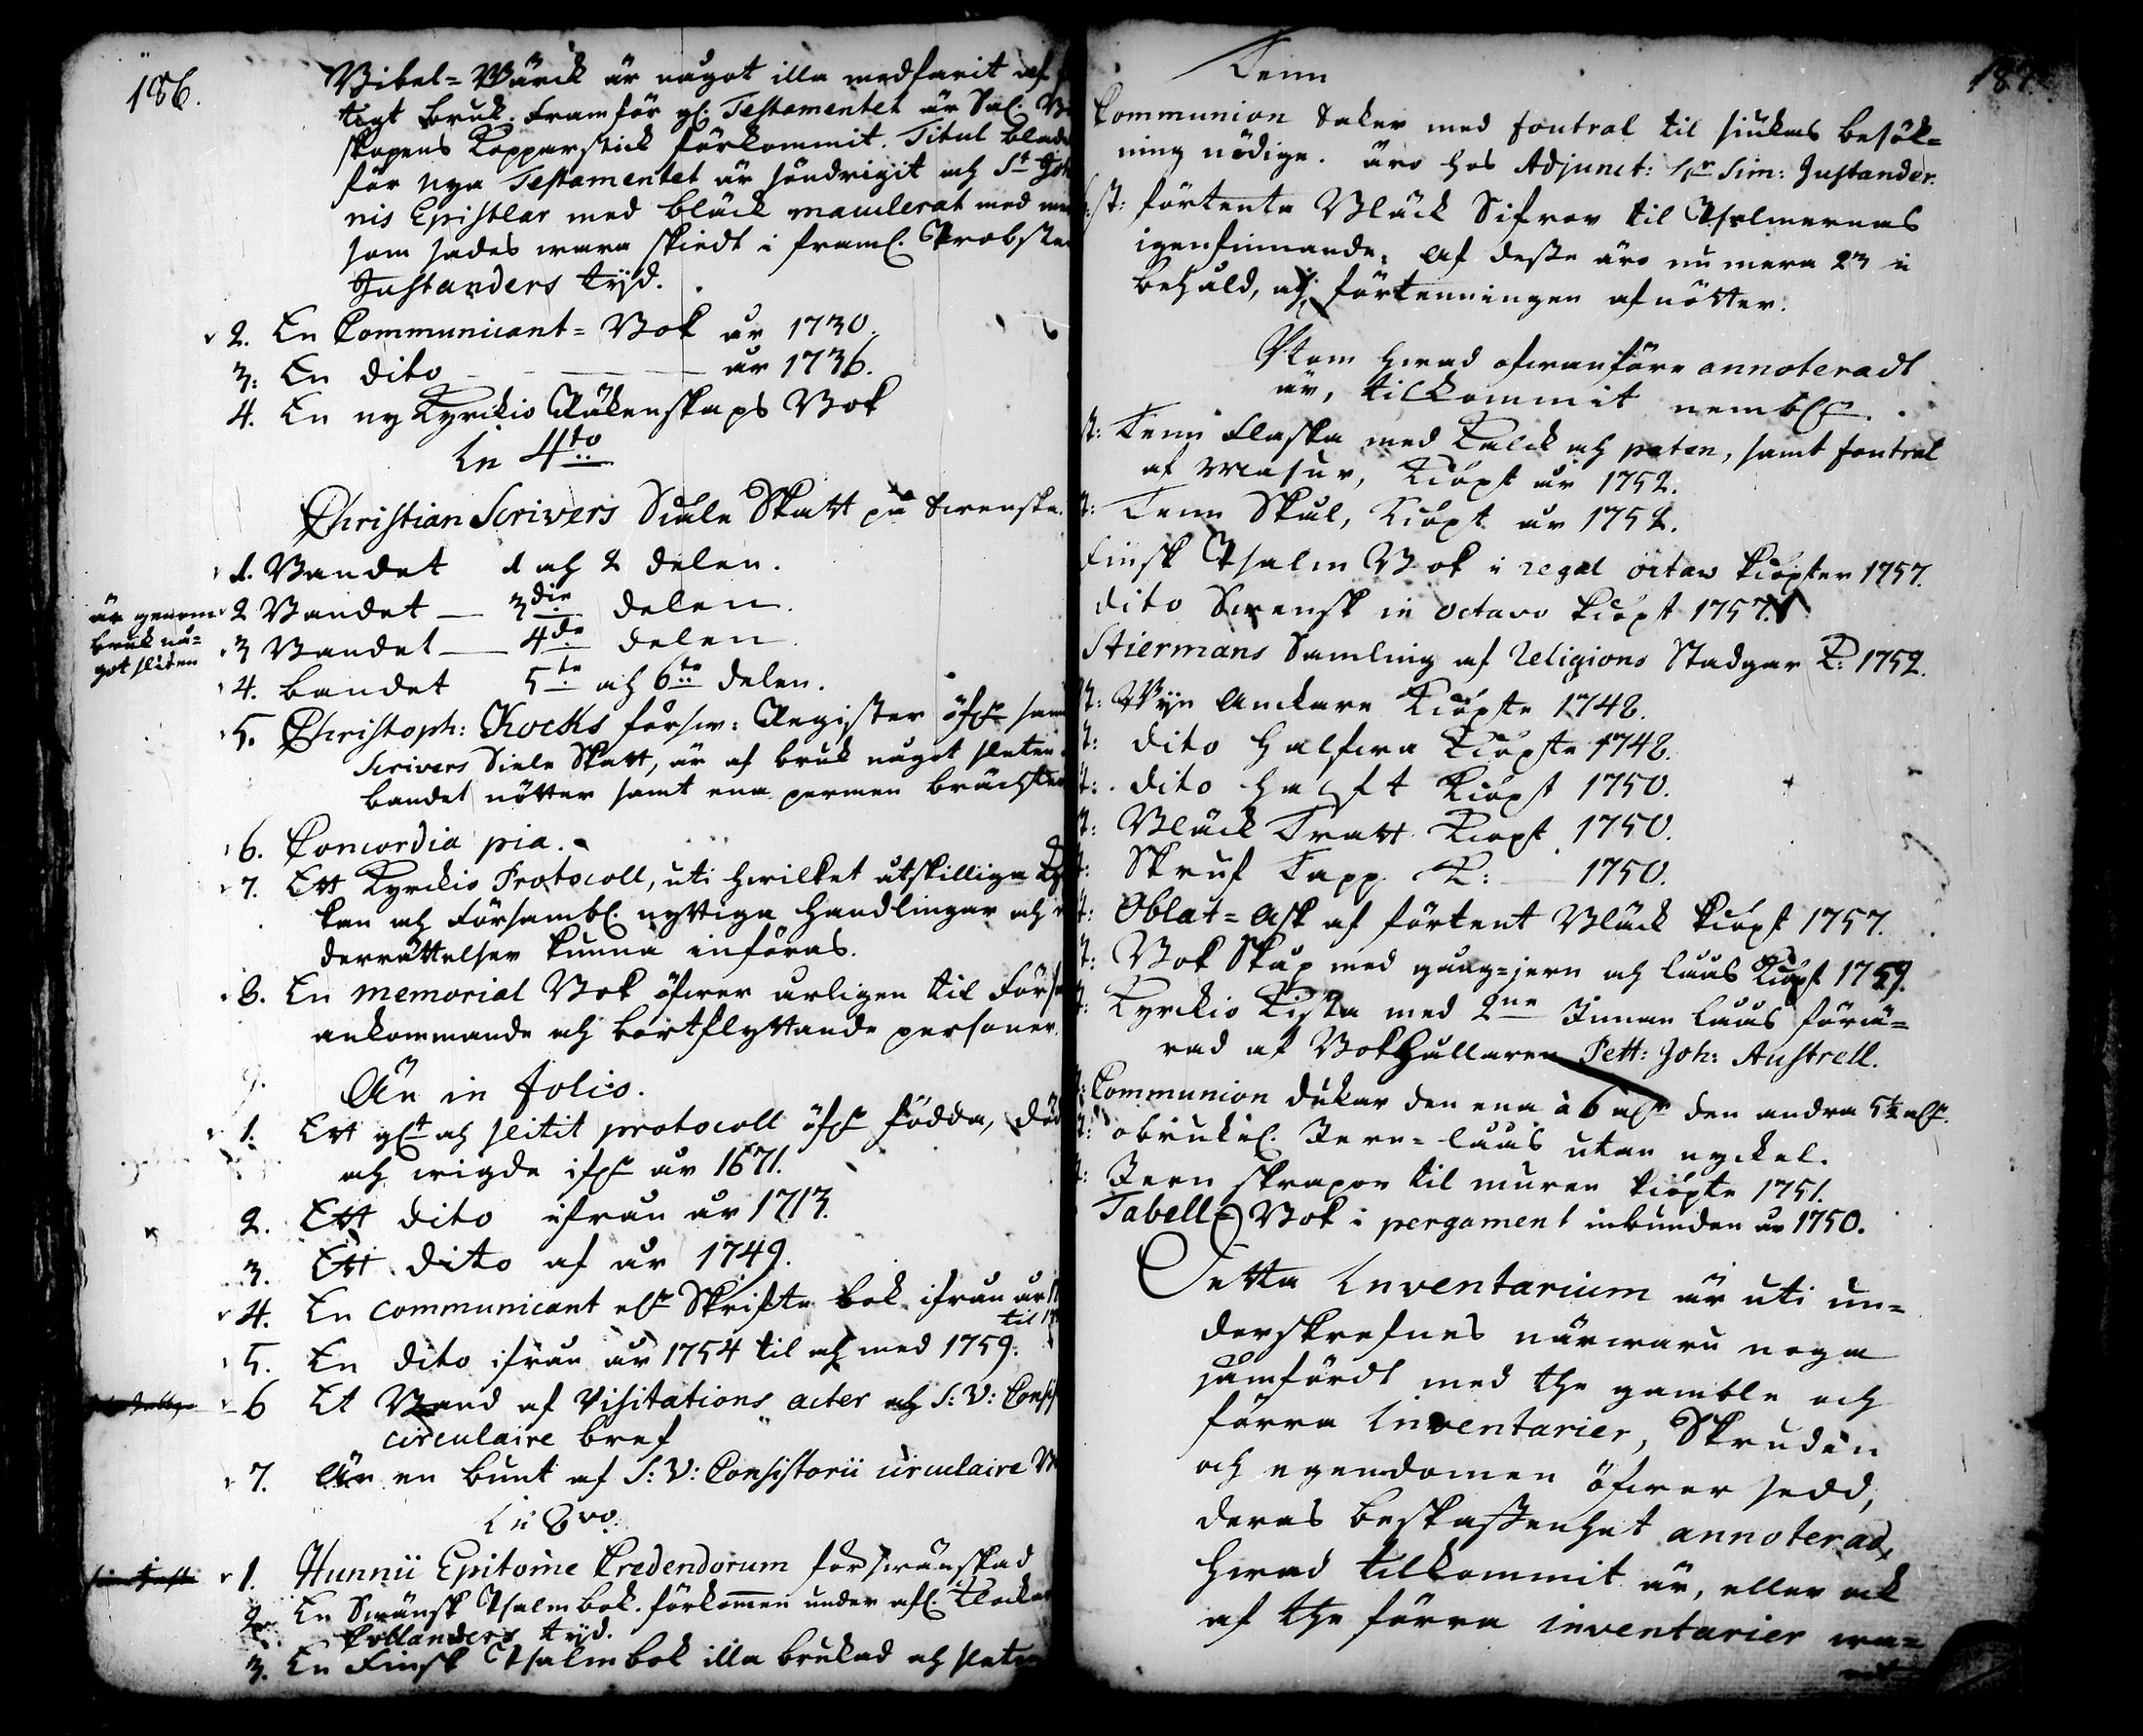 186.
Bibel-Wärck är något illa medfarit af
tigt bruk. Framför gl. Testamentet är Sal.
skapens Kopparstick förkommit. Titul blade
för nya Testamentet är söndrigit och St Joh
nis Epistlar med bläck maculerat med
som sades wara skiedt i framl. Probste
Justanders tijd.
2. En Communicant-Bok år 1730.
3: En dito — — år 1736.
4. En ny Kyrckio Räkenskaps Bok
In 4to
Christian Scrivers Siäle Skatt på Swenska.
1. Bandet 1 och 2 delen.
är genom
bruk nå-
got sliten
2 Bandet — 3die delen.
3 Bandet — 4de delen.
4. bandet 5te och 6te delen.
5. Christoph: Kocks försw: Register öfwer
Scrivers Siele Skatt, är af bruk något sleten
bandet nötter samt ena permen bräckt
6. Concordia pia.
7. Ett Kyrckio Protocoll, uti hwilket åtskilliga
kan och Försambl. nyttiga handlingar och
derrättelser kunna införas.
8. En memorial Bok öfwer årligen til Förs
ankommande och bortflyttande personer.
9. Än in folio.
1. Ett glt och slitit protocoll öfwer födda, död
och wigde ifrån år 1671.
2. Ett dito ifrån år 1713.
3. Ett dito af år 1749.
4. En communicant eller Skrifte bok ifrån år
til
5. En dito ifrån år 1754 til och med 1759.
6 Et Band af Visitations acter och S: V: Consis
circulaire bref
7. Än en bunt af S: V: Consistorii circulaire
In 8vo.
1. Hunnii Epitome Credendorum förswänskad
2. En Swänsk Psalmbok. förkommen under afl. Klocka
Pollanders tijd.
3. En Finsk Psalmbok illa brukad och sleten
187.
Tenn
Communion Saker med foutral til siukas besök-
ning nödige. äro hos Adjunct: Hr Sim: Justander.
st: förtente Bläck Sifror til Psalmernas
igenfinnande, af desse äro nu mera 23 i
behåld, och förtenningen afnötter.
Utom hwad ofwanföre annoteradt
är, tilkommit nembl.
st: Tenn Flaska med Kalck och paten, samt foutral
af masur, Kiöpt år 1752.
t: Tenn Skål, Kiöpt år 1752.
Finsk Psalm Bok i regal octav kiöpter 1757.
dito Swensk in octavo kiöpt 1757.
Stiermans Samling af Religions Stadgar K: 1752.
t: Wijn Anckare Kiöpte 1748.
t: dito halfwa Kiöpte 1748.
t: dito halft Kiöpt 1750.
t: Bläck Tratt Kiöpt 1750.
t: Skruf Tapp K: — 1750.
t: Oblat-Ask af förtent Bläck kiöpt 1757.
t: Bok Skåp med gång-jern och låås Kiöpt 1759.
t: Kyrckio Kista med 2ne Innan låås förä-
rad af Bokhållaren Pett: Joh: Austrell.
t: Communion dukar den ena à 6 aln den andra 5½ aln.
t: obrukel. Jern-låås utan nyckel.
t: Jern skrapor til muren kiöpte 1751.
Tabell Bok i pergament inbunden år 1750.
Detta Inventarium är uti un-
derskrefnes närwaru noga
jämfördt med the gamble och
förra Inventarier, Skruden
och egendomen öfwer sedd,
deras beskaffenhet annoterad,
hwad tilkommit är, eller ock
af the förra inventarier wa-